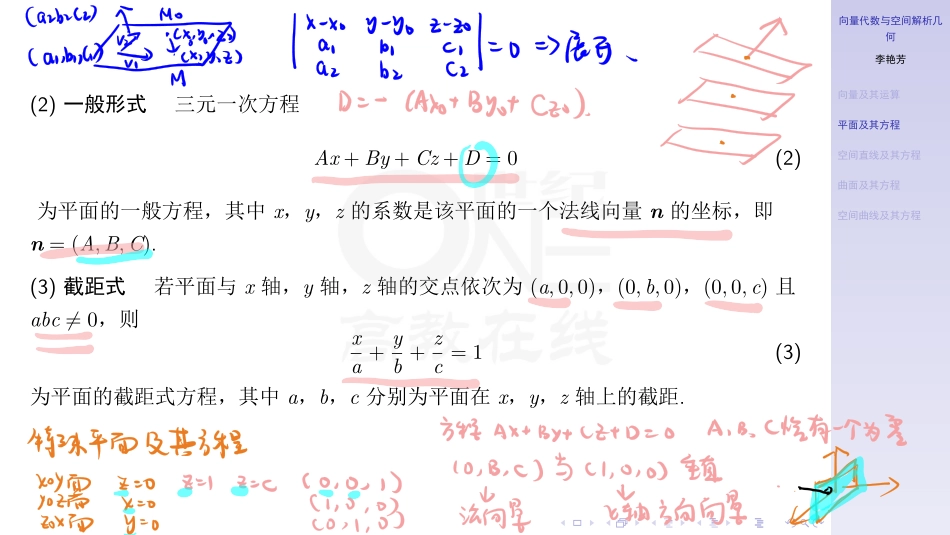 (a2 b2 c2) M0
(a1,b1,c1) v2 v1 (x0,y0,z0)
(x,y,z)
M
| x-x0 y-y0 z-z0 |
| a1 b1 c1 | =0 => 展开、
| a2 b2 c2 |
(2) 一般形式 三元一次方程 D=-(Ax0+By0+Cz0).
Ax + By + Cz + D = 0 (2)
为平面的一般方程，其中 x，y，z 的系数是该平面的一个法线向量 n 的坐标，即
n = (A, B, C).
(3) 截距式 若平面与 x 轴，y 轴，z 轴的交点依次为 (a, 0, 0)，(0, b, 0)，(0, 0, c) 且
abc ≠ 0，则
x/a + y/b + z/c = 1 (3)
为平面的截距式方程，其中 a，b，c 分别为平面在 x，y，z 轴上的截距.
特殊平面及其方程
xoy面 z=0 z=1 z=c (0,0,1)
yoz面 x=0 (1,0,0)
zox面 y=0 (0,1,0)
方程 Ax+By+Cz+D=0 A、B、C恰有一个为零
(0,B,C) 与 (1,0,0) 垂直
法向量 x轴方向向量
世纪
ONE
高教在线
向量代数与空间解析几
何
李艳芳
向量及其运算
平面及其方程
空间直线及其方程
曲面及其方程
空间曲线及其方程